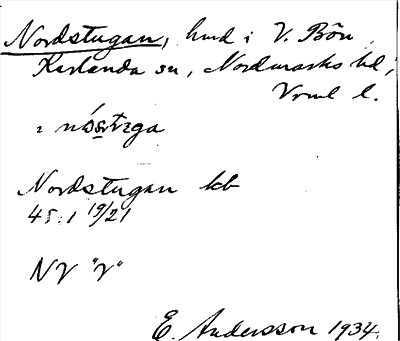 Nordstugan, hmd i V. Bön,
Karlanda sn, Nordmarks hd,
Vrml l.
Nordstugan kb
45:1 19/21
NV "V"
E. Andersson 1934.